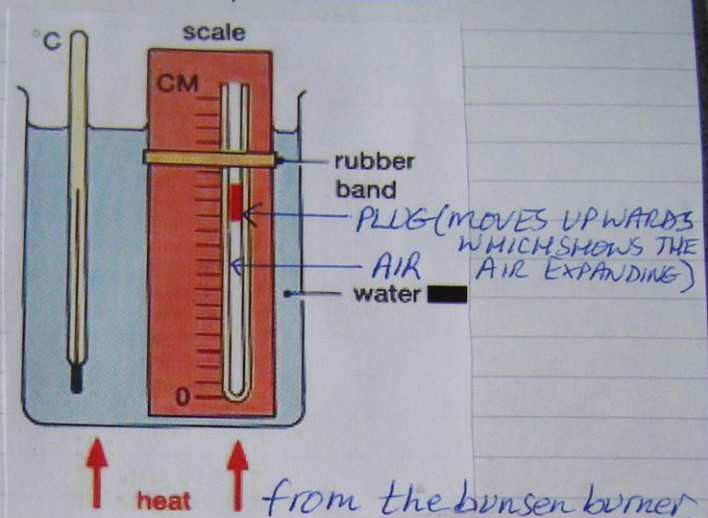 °C
scale
CM
rubber
band
PLUG (MOVES UPWARDS
WHICH SHOWS THE
AIR
AIR EXPANDING)
water
0
heat
from the bunsen burner